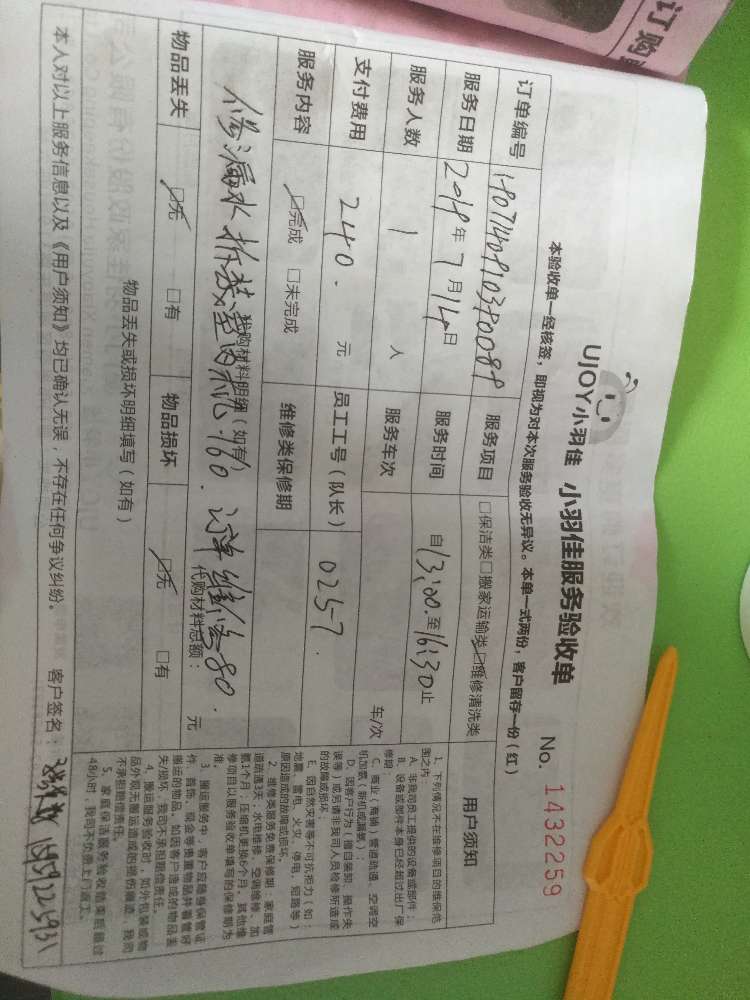 订购
UJOY小羽佳 小羽佳服务验收单 No. 1432259
本验收单一经核签，即视为对本次服务验收无异议。本单一式两份，客户留存一份（红）
订单编号 服务项目 □保洁类□搬家运输类☑维修清洗类 用户须知
服务日期 2018年7月14日 服务时间 自13:00.至16:30止
服务人数 1 人 服务车次 车/次
支付费用 240. 元 员工工号（队长） 0257.
服务内容 ☑完成 □未完成 维修类保修期
代购材料明细（如有）
修漏水 拆装 160. 维修80.
代购材料总额： 元
物品丢失 ☑无 □有 物品损坏 ☑无 □有
物品丢失或损坏明细填写（如有）
本人对以上服务信息以及《用户须知》均已确认无误，不存在任何争议纠纷。 客户签名：
1、下列情况不在维修项目的维保范围之内：
A、非我司员工提供的设备或部件；
B、设备或部件本身已经超过出厂保修期；
C、商业（商铺）管道疏通、空调空机加氨（新机或漏氟）；
D、因客户行为（擅自装卸、操作失误等）或另请非我司人员维修所造成的故障或损坏；
E、因自然灾害等不可抗拒力（如：地震、雷电、火灾、停电、短路等）原因造成的故障或损坏。
2、维修类服务免费保修期：家庭管道疏通3天，水电维修、空调维修、加氨1个月，压缩机更换6个月，其他维修项目以服务验收单填写的保修期为准。
3、搬运服务中，客户应随身保管证件、首饰、现金等贵重物品并看管好搬运的物品。如因客户造成的物品丢失/损坏，我司不承担赔偿责任。
4、搬运服务验收时，如外包装或物品外观无搬运造成的损伤痕迹，我司不承担赔偿责任。
5、家庭保洁服务验收结束后超过48小时，我司不负责上门返工。